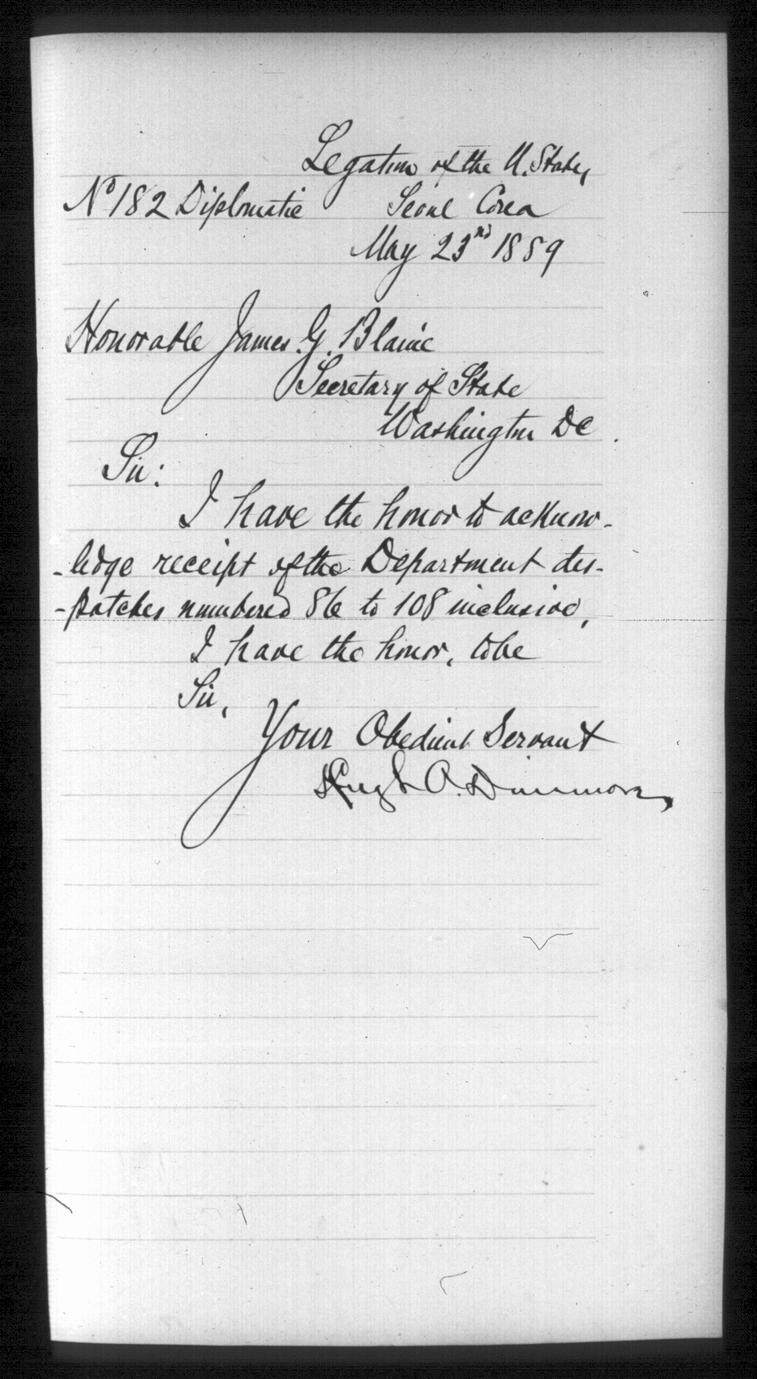 Legation of the U. States,
No 182 Diplomatic Seoul Corea
May 23rd 1889
Honorable James G. Blaine
Secretary of State
Washington DC.
Sir:
I have the honor to acknow-
-ledge receipt of the Department des-
-patches numbered 86 to 108 inclusive,
I have the honor, to be
Sir,
Your Obedient Servant
Hugh A. Dinsmore,